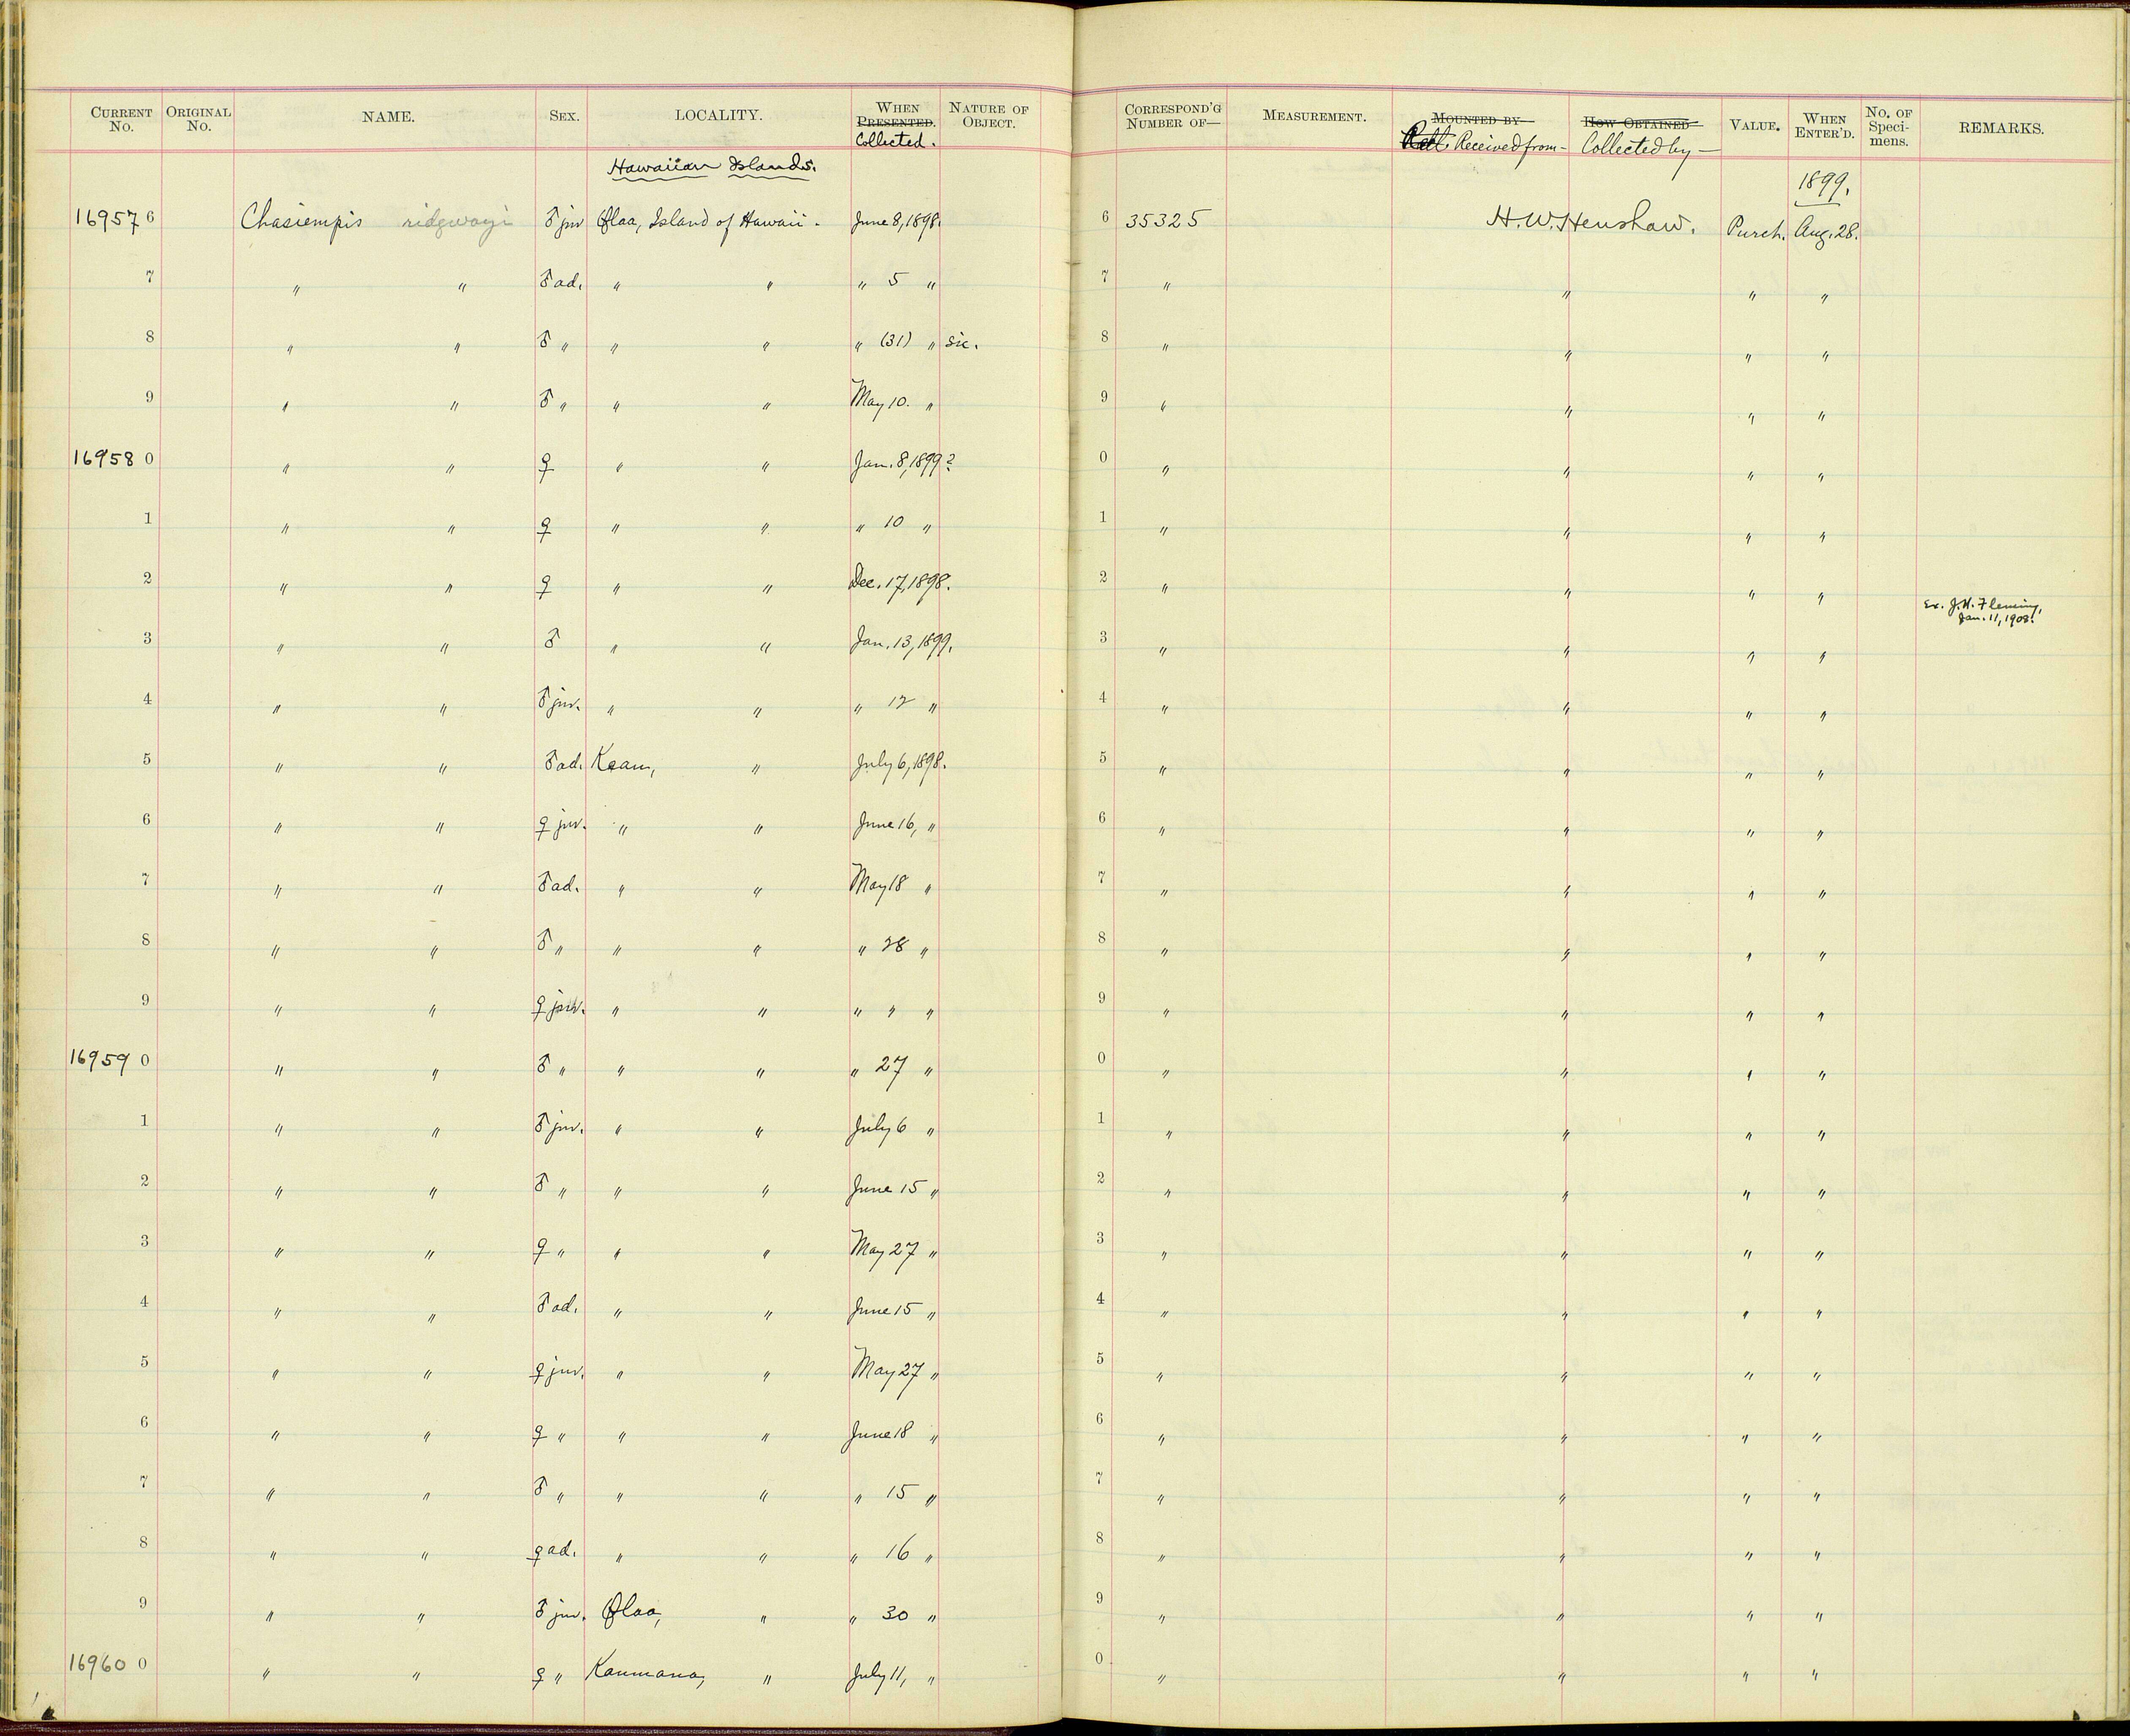 CURRENT No. ORIGINAL No. NAME. SEX. LOCALITY. WHEN PRESENTED. Collected. NATURE OF OBJECT. CORRESPOND'G NUMBER OF— MEASUREMENT. MOUNTED BY— Received from— HOW OBTAINED— Collected by— VALUE. WHEN ENTER'D. No. OF Speci-mens. REMARKS.
Hawaiian Islands. 1899.
169576 Chasiempis ridgwayi ♂ juv Olaa, Island of Hawaii. June 8, 1898. 6 35325 H. W. Henshaw. Purch. Aug. 28.
7 " " ♂ ad. " " " 5 " 7 " " " "
8 " " ♂ " " " " (31) " sic. 8 " " " "
9 " " ♂ " " " May 10. " 9 " " " "
169580 " " ♀ " " Jan. 8, 1899? 0 " " " "
1 " " ♀ " " " 10 " 1 " " " "
2 " " ♀ " " Dec. 17, 1898. 2 " " " "
Ex. J. H. Fleming,
Jan. 11, 1908.
3 " " ♂ " " Jan. 13, 1899. 3 " " " "
4 " " ♂ juv. " " " 12 " 4 " " " "
5 " " ♂ ad. Keau, " July 6, 1898. 5 " " " "
6 " " ♀ juv. " " June 16, " 6 " " " "
7 " " ♂ ad. " " May 18 " 7 " " " "
8 " " ♂ " " " " 28 " 8 " " " "
9 " " ♀ juv. " " " " " 9 " " " "
169590 " " ♂ " " " " 27 " 0 " " " "
1 " " ♂ juv. " " July 6 " 1 " " " "
2 " " ♂ " " " June 15 " 2 " " " "
3 " " ♀ " " " May 27 " 3 " " " "
4 " " ♂ ad. " " June 15 " 4 " " " "
5 " " ♀ juv. " " May 27 " 5 " " " "
6 " " ♀ " " " June 18 " 6 " " " "
7 " " ♂ " " " " 15 " 7 " " " "
8 " " ♀ ad. " " " 16 " 8 " " " "
9 " " ♂ juv. Olaa, " " 30 " 9 " " " "
169600 " " ♀ " Kaumana, " July 11, " 0 " " " "